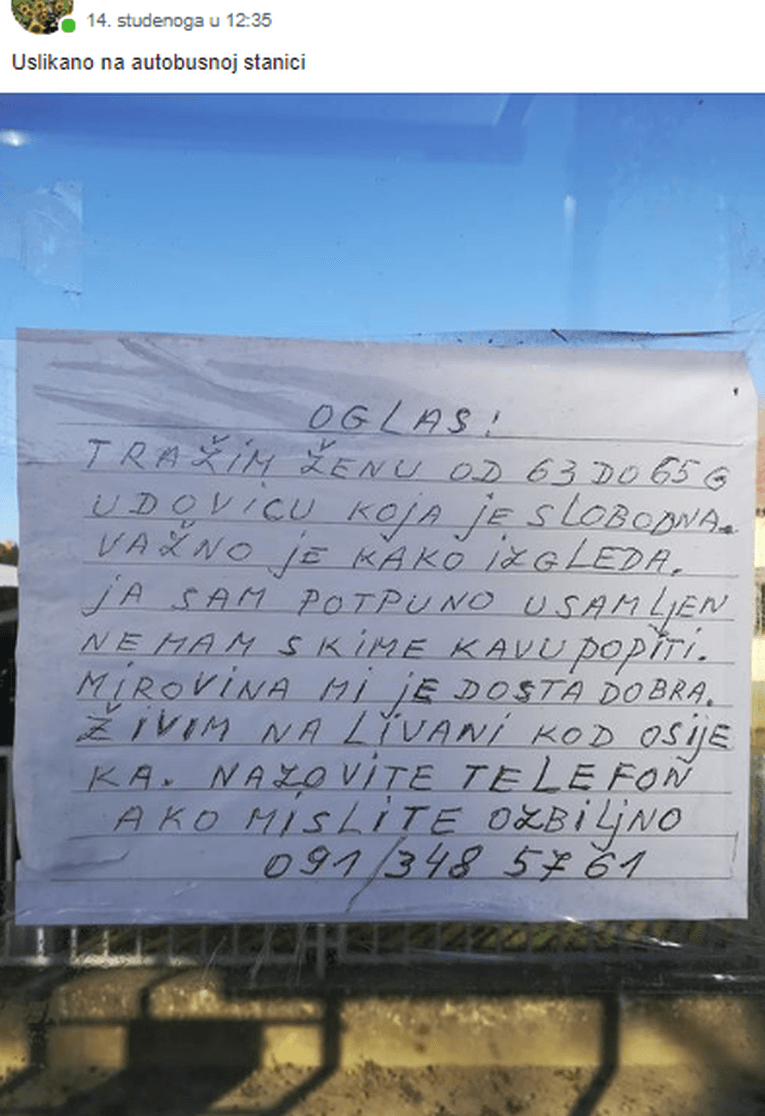 14. studenoga u 12:35
Uslikano na autobusnoj stanici
OGLAS!
TRAŽIM ŽENU OD 63 DO 65 G
UDOVICU KOJA JE SLOBODNA.
VAŽNO JE KAKO IZGLEDA.
JA SAM POTPUNO USAMLJEN
NEMAM SKIME KAVU POPITI.
MIROVINA MI JE DOSTA DOBRA.
ŽIVIM NA LIVANI KOD OSIJE
KA. NAZOVITE TELEFON
AKO MISLITE OZBILJNO
091/348 57 61